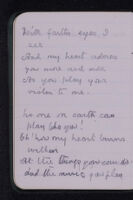 eyes, I
see
And my heart adores
you more and more
As you play your
violin to me.
No one on earth can
play like you!
Oh! how my heart burns
within
At the things you can do
And the music you play.